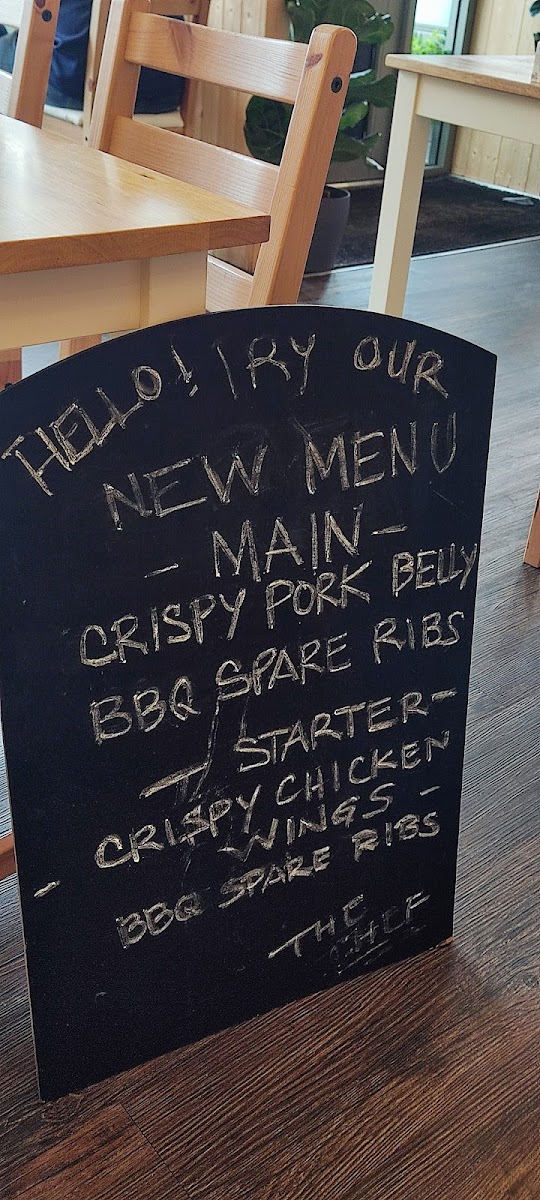 HELLO! TRY OUR
NEW MENU
- MAIN -
CRISPY PORK BELLY
BBQ SPARE RIBS
- STARTER -
CRISPY CHICKEN
WINGS -
- BBQ SPARE RIBS
THE
CHEF